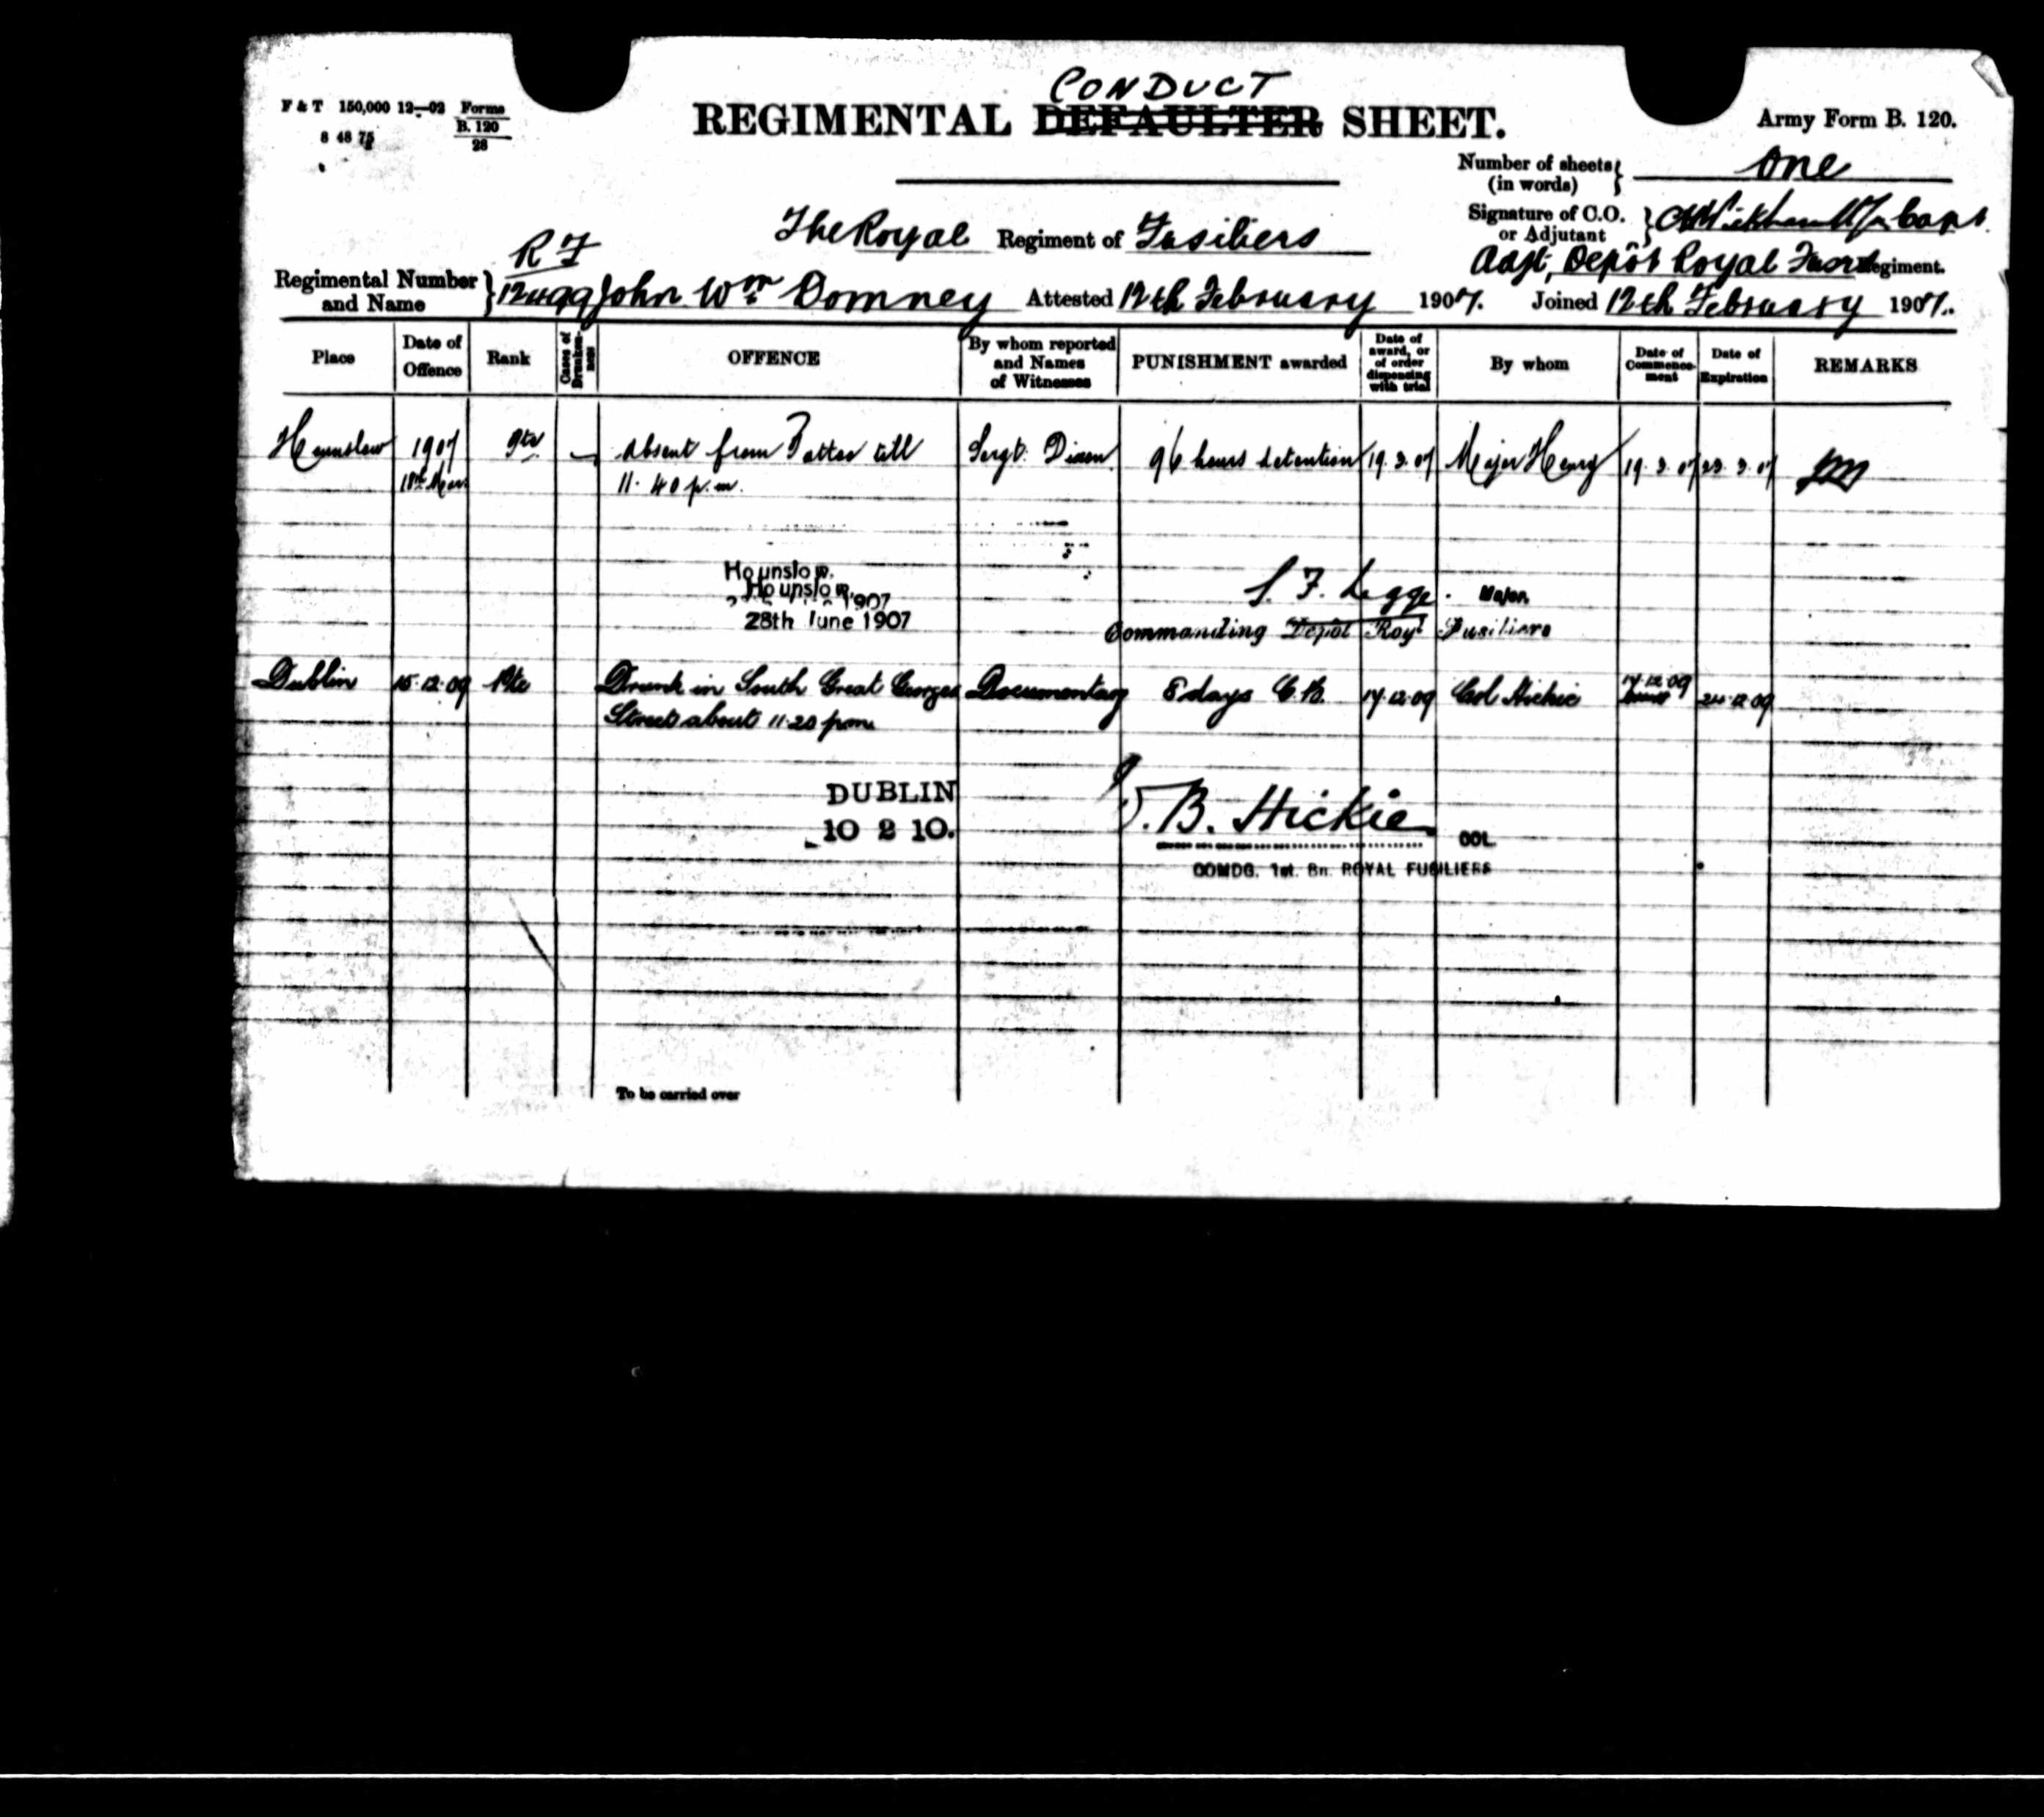 CONDUCT
F & T 150,000 12—02 Forms
B. 120
28
8 48 75
REGIMENTAL DEFAULTER SHEET.
Army Form B. 120.
Number of sheets (in words) } One
The Royal Regiment of Fusiliers
Signature of C.O. or Adjutant } Capt
Adjt, Depôt Royal Fusrs Regiment.
R F
Regimental Number and Name } 12499 John Wm Domney Attested 12th February 1907. Joined 12th February 1907.
Place Date of Offence Rank Cases of Drunkenness OFFENCE By whom reported and Names of Witnesses PUNISHMENT awarded Date of award, or of order dispensing with trial By whom Date of Commencement Date of Expiration REMARKS
Hounslow 1907 Pte — Absent from Tattoo till Sergt. Dixon 96 hours detention 19.3.07 Major Henry 19.3.07 22.3.07
18th Mar. 11.40 p.m.
Hounslow.
Hounslow.
1907
28th June 1907
S. F. Legge. Major,
Commanding Depôt Royl Fusiliers
Dublin 15.12.09 Pte Drunk in South Great Georges Documentary 8 days C.B. 17.12.09 Col Hickie 17.12.09 24.12.09
Street about 11.20 pm
DUBLIN
10 2 10.
B. Hickie COL
COMDG. 1st. Bn. ROYAL FUSILIERS
To be carried over